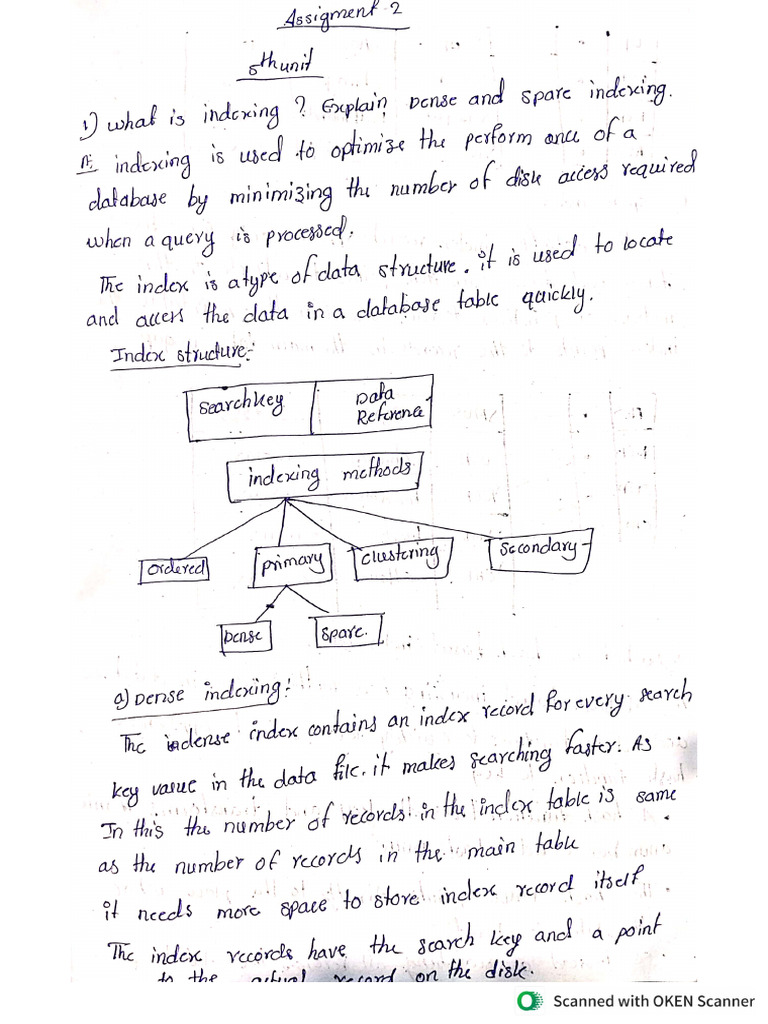 Assigment 2
5th unit
1) what is indexing ? Explain Dense and spare indexing.
A: indexing is used to optimize the perform ance of a
database by minimizing the number of disk access required
when a query is processed.
The index is a type of data structure. it is used to locate
and access the data in a database table quickly.
Index structure:-
Searchkey Data
Reference
indexing methods
ordered primary clustering Secondary
Dense Spare.
a) Dense indexing:
The dense index contains an index record for every search
key value in the data file. it makes searching faster. As
In this the number of records in the index table is same
as the number of records in the main table
it needs more space to store index record itself
The index records have the search key and a point
to the actual record on the disk.
Scanned with OKEN Scanner